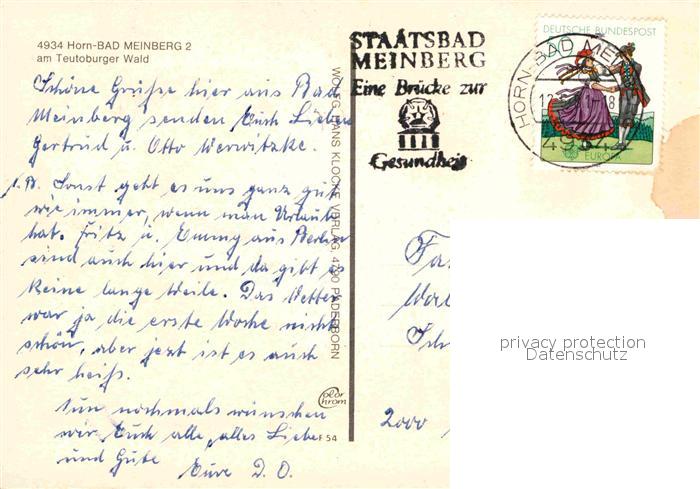 4934 Horn-BAD MEINBERG 2
am Teutoburger Wald
Schöne Grüße hier aus Bad
Meinberg senden Euch Lieben
Gertrud u. Otto
Sonst geht es uns ganz gut
wie immer, wenn man Urlaub
hat. Fritz u. Emmy aus Berlin
sind auch hier und da gibt es
keine lange Weile. Das Wetter
war ja die erste Woche nicht
schön, aber jezt ist es auch
sehr heiß.
Nun nochmals wünschen
wir Euch alle, alles Liebe
und Gute
Eure G. O.
WOLFG. HANS KLOCKE VERLAG, 4790 PADERBORN
color
chrom
F 54
STAATSBAD
MEINBERG
Eine Brücke zur
Gesundheit
DEUTSCHE BUNDESPOST
EUROPA
HORN-BAD MEI
12
8
4934
Fa
2000
privacy protection
Datenschutz